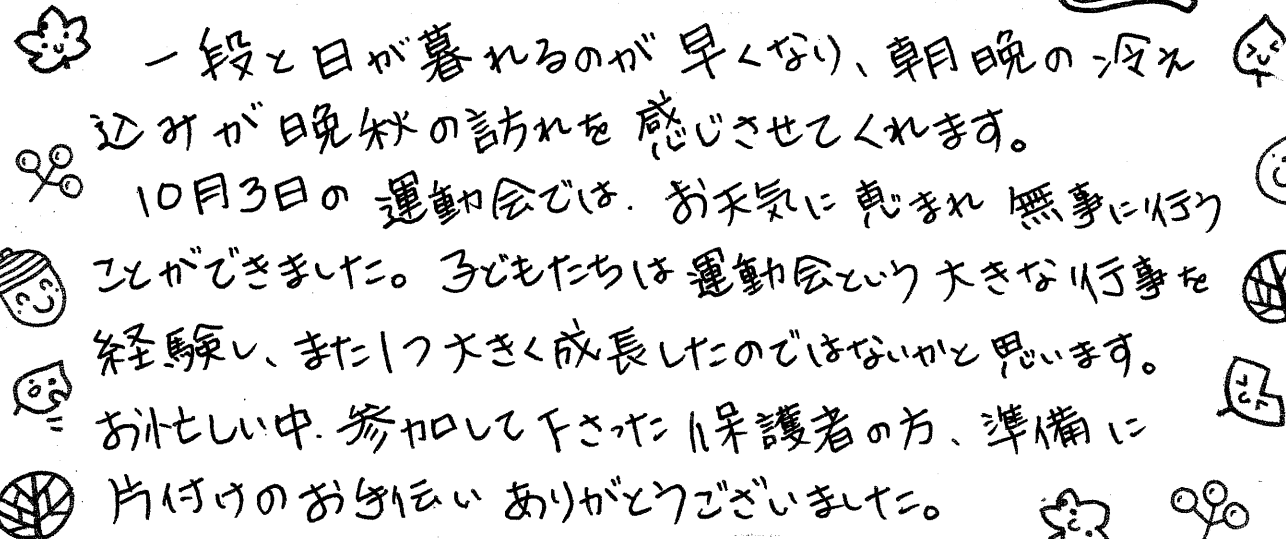 一段と日が暮れるのが早くなり、朝晩の冷え
込みが晩秋の訪れを感じさせてくれます。
10月3日の運動会では、お天気に恵まれ無事に行う
ことができました。子どもたちは運動会という大きな行事を
経験し、また1つ大きく成長したのではないかと思います。
お忙しい中、参加して下さった保護者の方、準備に
片付けのお手伝いありがとうございました。